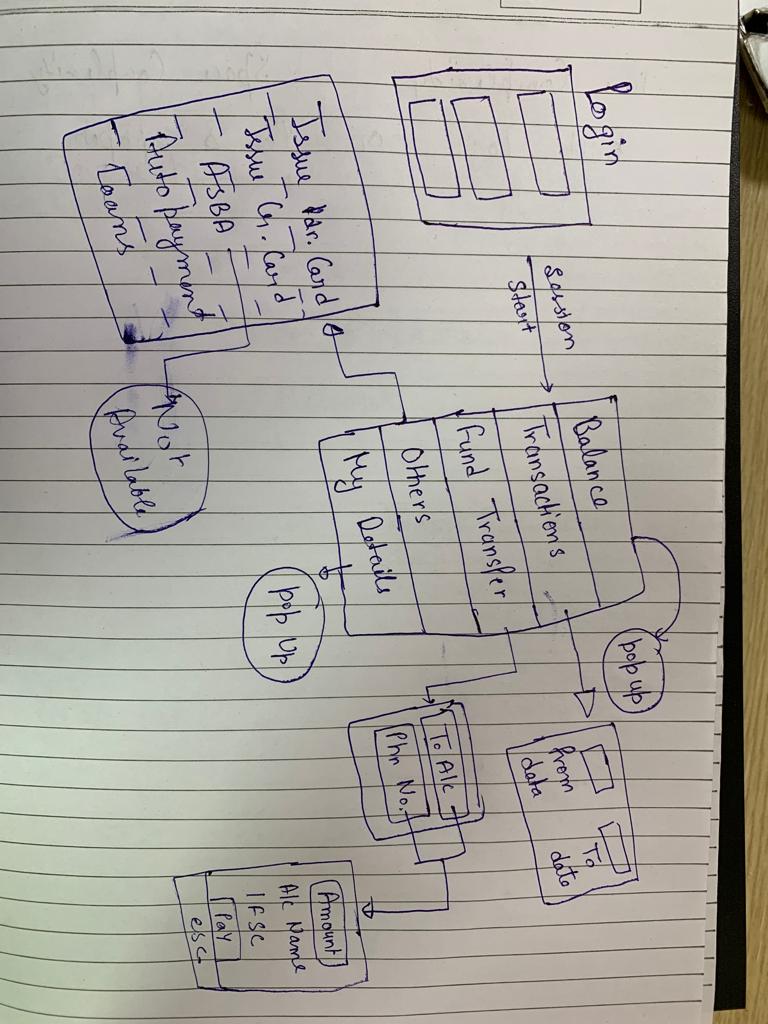 Login
Session
Start
Balance
Transactions
Fund Transfer
Others
My Details
pop up
from
data
To
date
To A/c
Phn No.
Amount
A/c Name
IFSC
Pay
esc
Pop Up
Issue Dr. Card
Issue Cr. Card
ASBA
Auto payment
Loans
Not
Available